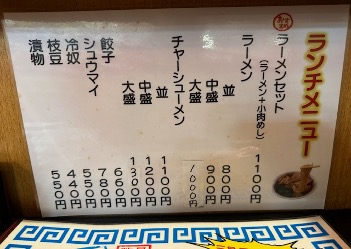 ランチメニュー
おすすめ
ラーメンセット
(ラーメン+小肉めし) 1100円
ラーメン
並 800円
中盛 900円
大盛 1000円
チャーシューメン
並 1100円
中盛 1200円
大盛 1300円
餃子 600円
シュウマイ 750円
冷奴 450円
枝豆 400円
漬物 550円